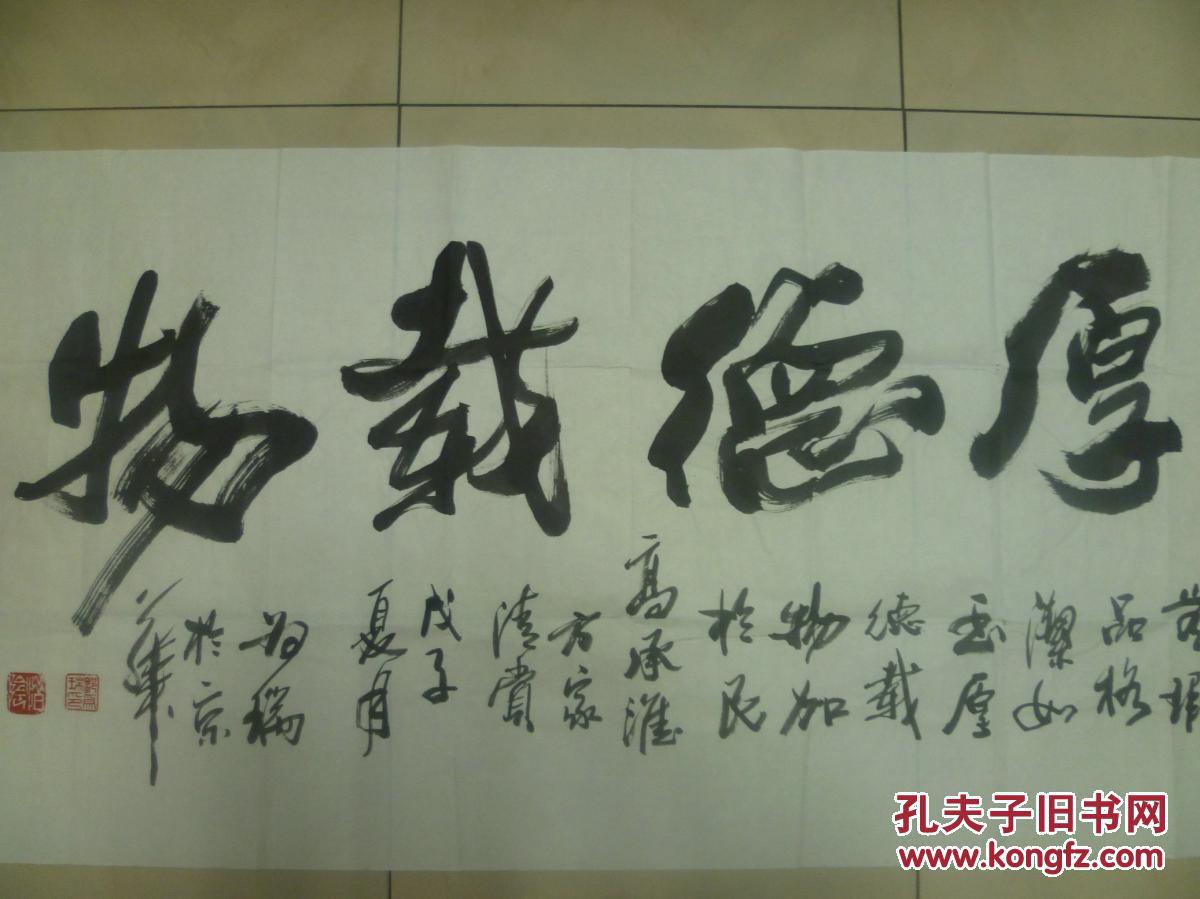 厚德载物
品格
潔如
玉厚
德载
物加
於民
高承淮
方家
清賞
戊子
夏月
於京
華
孔夫子旧书网
www.kongfz.com